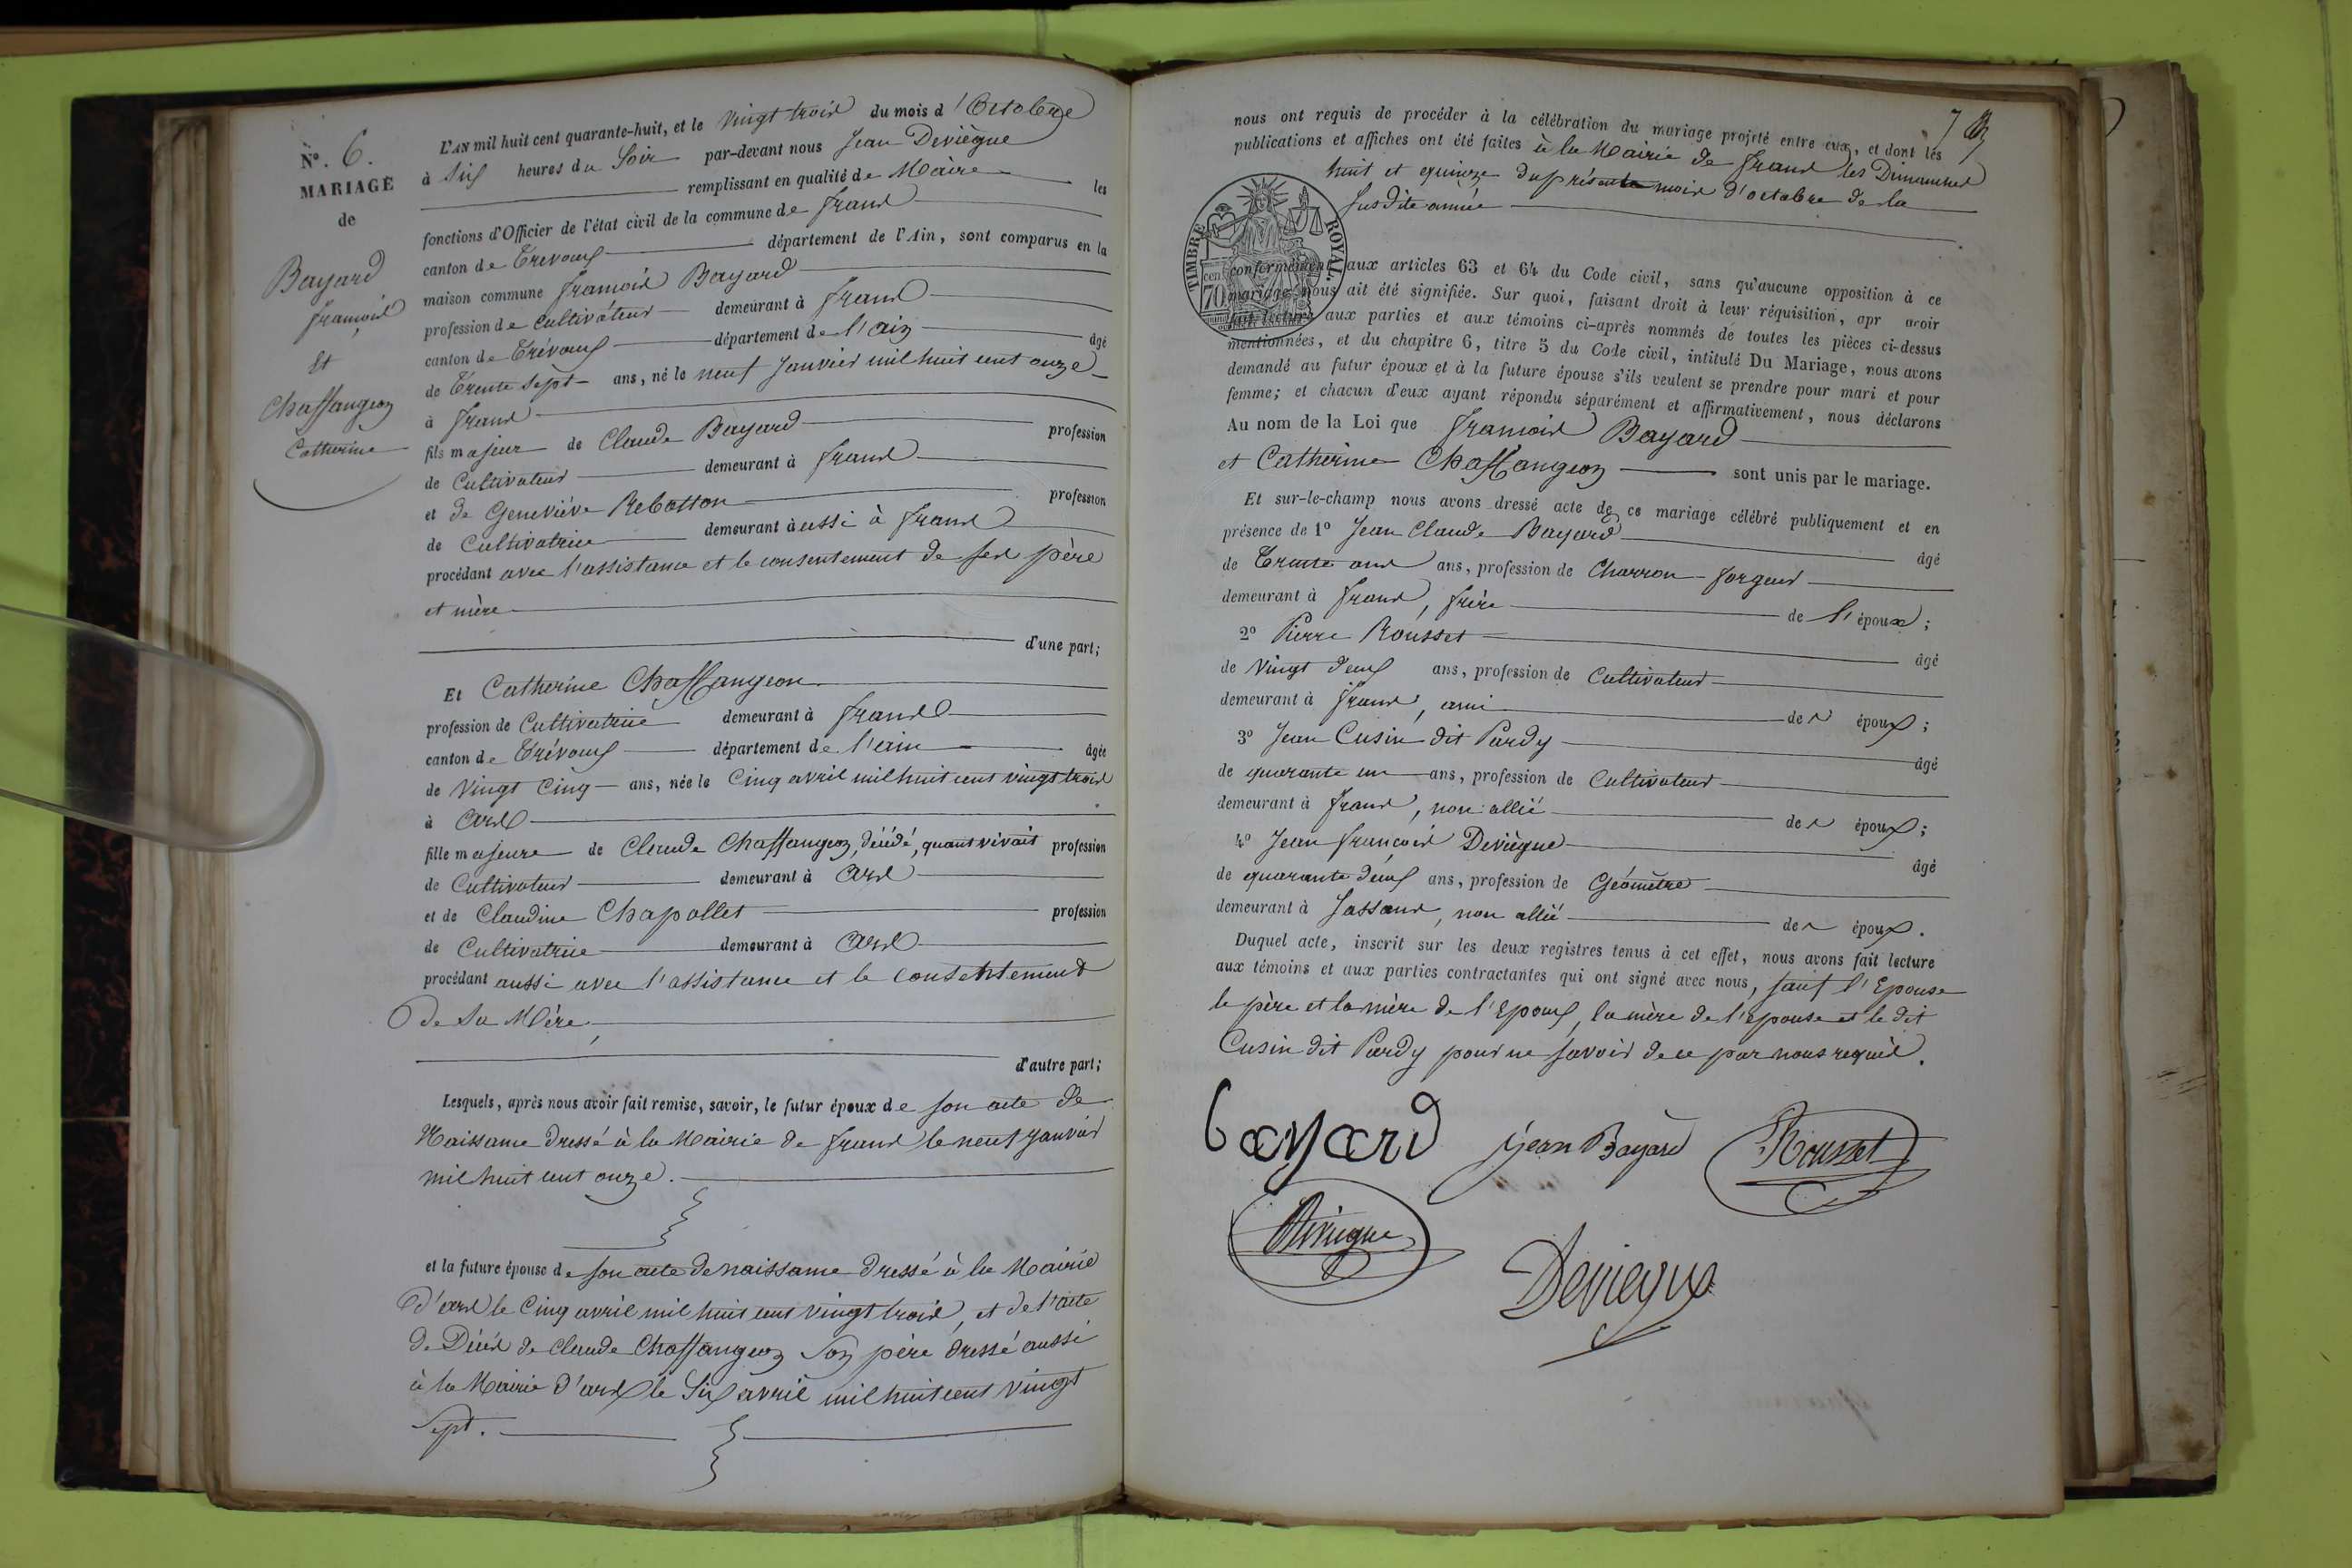 N°. 6.
MARIAGE
de
Bayard
françois
Et
Chaffangeon
Catherine
L'AN mil huit cent quarante-huit, et le vingt trois du mois d'Octobre
à Six heures du Soir par-devant nous Jean Deviègne
remplissant en qualité de Maire les
fonctions d'Officier de l'état civil de la commune de frans
canton de Trevoux département de l'Ain, sont comparus en la
maison commune françois Bayard
profession de cultivateur demeurant à frans
canton de Trévoux département de l'ain âgé
de Trente sept ans, né le neuf janvier mil huit cent onze
à frans
fils majeur de Claude Bayard profession
de Cultivateur demeurant à frans
et de Geneviève Rebotton profession
de Cultivatrice demeurant à aussi à frans
procédant avec l'assistance et le consentement de ses père
et mère
d'une part;
Et Catherine Chaffangeon
profession de Cultivatrice demeurant à frans
canton de Trévoux département de l'ain âgée
de Vingt Cinq ans, née le Cinq avril mil huit cent vingt trois
à Ars
fille majeure de Claude Chaffangeon, décédé, quant vivait profession
de Cultivateur demeurant à Ars
et de Claudine Chapollet profession
de Cultivatrice demeurant à Ars
procédant aussi avec l'assistance et le consentement
de Sa Mère,
d'autre part;
Lesquels, après nous avoir fait remise, savoir, le futur époux de son acte de
Naissance dressé à la Mairie de frans le neuf janvier
mil huit cent onze.
et la future épouse de son acte de naissance dressé à la Mairie
d'ars le Cinq avril mil huit cent vingt trois, et de l'acte
de Décès de Claude Chaffangeon Son père dressé aussi
à la Mairie d'ars le Six avril mil huit cent vingt
Sept.
7
nous ont requis de procéder à la célébration du mariage projeté entre eux, et dont les
publications et affiches ont été faites à la Mairie de frans les Dimanches
huit et quinze du présent mois d'octobre de la
susdite année
TIMBRE ROYAL
cent
70
conformément aux articles 63 et 64 du Code civil, sans qu'aucune opposition à ce
mariage nous ait été signifiée. Sur quoi, faisant droit à leur réquisition, apr avoir
fait lecture aux parties et aux témoins ci-après nommés de toutes les pièces ci-dessus
mentionnées, et du chapitre 6, titre 5 du Code civil, intitulé Du Mariage, nous avons
demandé au futur époux et à la future épouse s'ils veulent se prendre pour mari et pour
femme; et chacun d'eux ayant répondu séparément et affirmativement, nous déclarons
Au nom de la Loi que françois Bayard
et Catherine Chaffangeon sont unis par le mariage.
Et sur-le-champ nous avons dressé acte de ce mariage célébré publiquement et en
présence de 1° Jean Claude Bayard âgé
de Trente ans ans, profession de Charron-forgeur
demeurant à frans, frère de l'époux;
2° Pierre Rousset âgé
de vingt deux ans, profession de Cultivateur
demeurant à frans, ami des époux;
3° Jean Cusin dit Pardy âgé
de quarante un ans, profession de Cultivateur
demeurant à frans, non allié des époux;
4° Jean françois Deviègne âgé
de quarante deux ans, profession de Géomètre
demeurant à Jassans, non allié des époux.
Duquel acte, inscrit sur les deux registres tenus à cet effet, nous avons fait lecture
aux témoins et aux parties contractantes qui ont signé avec nous, sauf l'Epouse
le père et la mère de l'Epoux, la mère de l'Epouse et le dit
Cusin dit Pardy pour ne savoir de ce par nous requis.
bayard jean Bayard Rousset
Deviegne
Deviegne